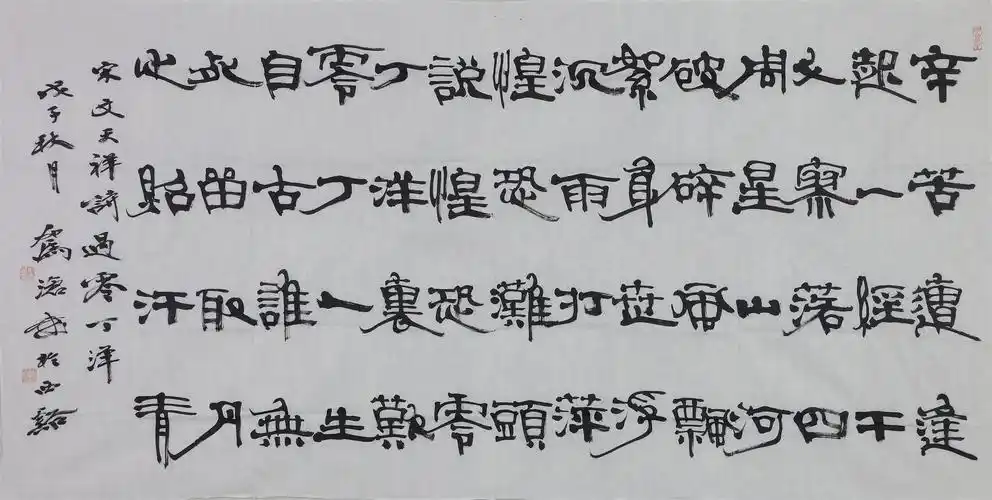 辛苦遭逢
起一經干
戈寥落四
周星山河
破碎風飄
絮身世浮
沉雨打萍
惶恐灘頭
說惶恐零
丁洋裏歎
零丁人生
自古誰無
死留取丹
心照汗青
宋文天祥詩過零丁洋
戊子秋月 於西谿